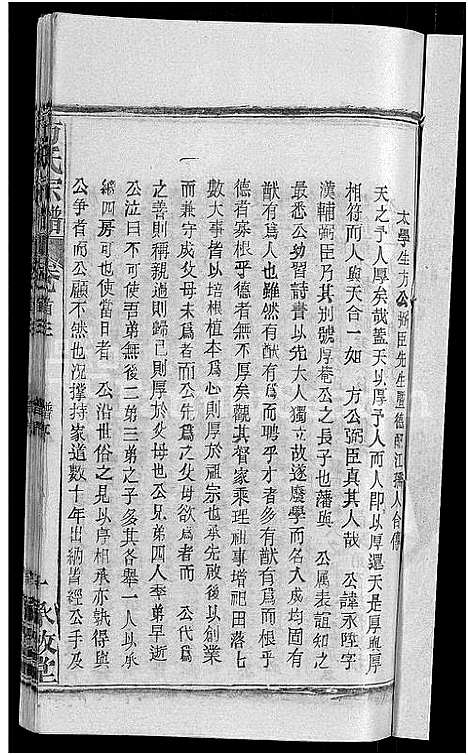 太學生方公弼臣先生暨德配江孺人合傳
天之予人厚矣哉蓋天以厚予人而人即以厚還天是厚與厚
相符而人與天合一如 方公弼臣真其人哉 公諱承陞字
漢輔弼臣乃其別號厚菴公之長子也藩與 公屬表誼知之
最悉公幼習詩書以先大人獨立故遂廢學而大成均固有
猷有為而人也雖然有猷有為而聘乎才者多有猷有為而根乎
德者寡根乎德者無不厚矣觀其督家乘理祖事增祀田落七
數大事皆以培根植本為心則厚於祖宗也承先啟後以創業
而兼守成父母未為者而公先為之父母欲為者而 公代為
之善則稱親過則歸已則厚於父母也公兄弟四人季弟早逝
公泣曰不可使吾弟無後二弟三弟之子多其各舉一人以承
繼四房可也使當日者 公沿世俗之見以均相承亦孰得與
公爭者而公顧不然也況撑持家道數十年出納皆經公手及
方氏宗譜
卷首
譜
十
承啟堂